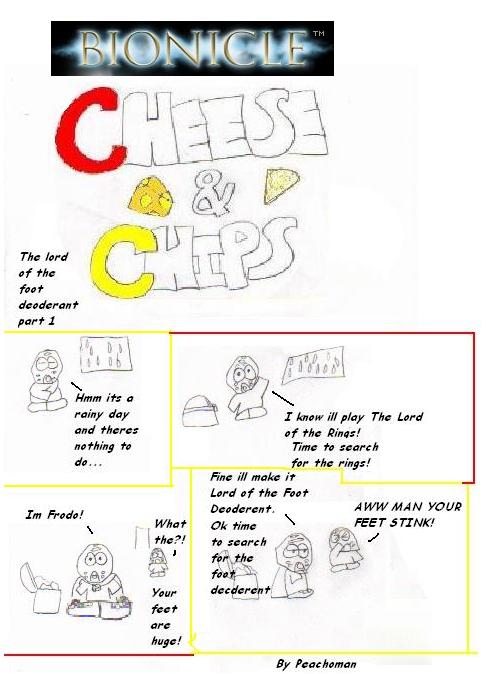 BIONICLE™
CHEESE
&
CHIPS
The lord
of the
foot
deoderant
part 1
Hmm its a
rainy day
and theres
nothing to
do...
I know ill play The Lord
of the Rings!
Time to search
for the rings!
Im Frodo!
What
the?!
Your
feet
are
huge!
Fine ill make it
Lord of the Foot
Deoderent.
Ok time
to search
for the
foot
decderent
AWW MAN YOUR
FEET STINK!
By Peachoman